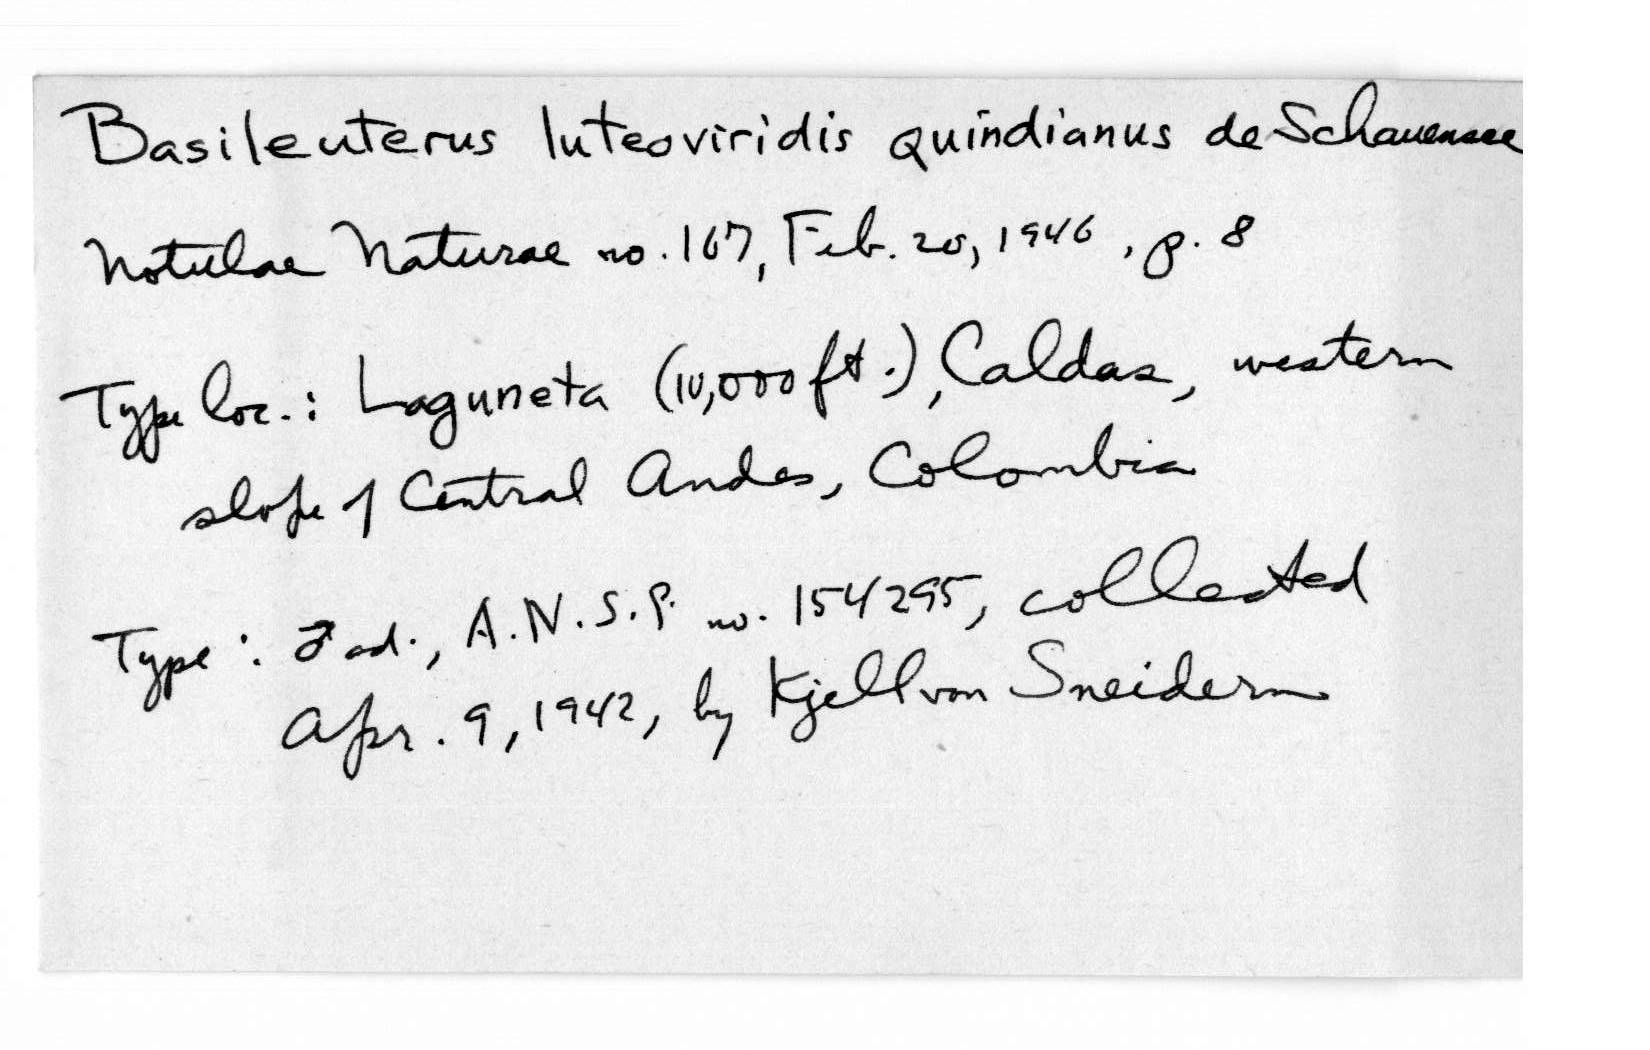 Basileuterus luteoviridis quindianus de Schauensee
Notulae Naturae no. 167, Feb. 20, 1946, p. 8
Type loc.: Laguneta (10,000 ft.), Caldas, western
slope of Central Andes, Colombia
Type: ♂ ad., A.N.S.P. no. 154295, collected
Apr. 9, 1942, by Kjell von Sneidern